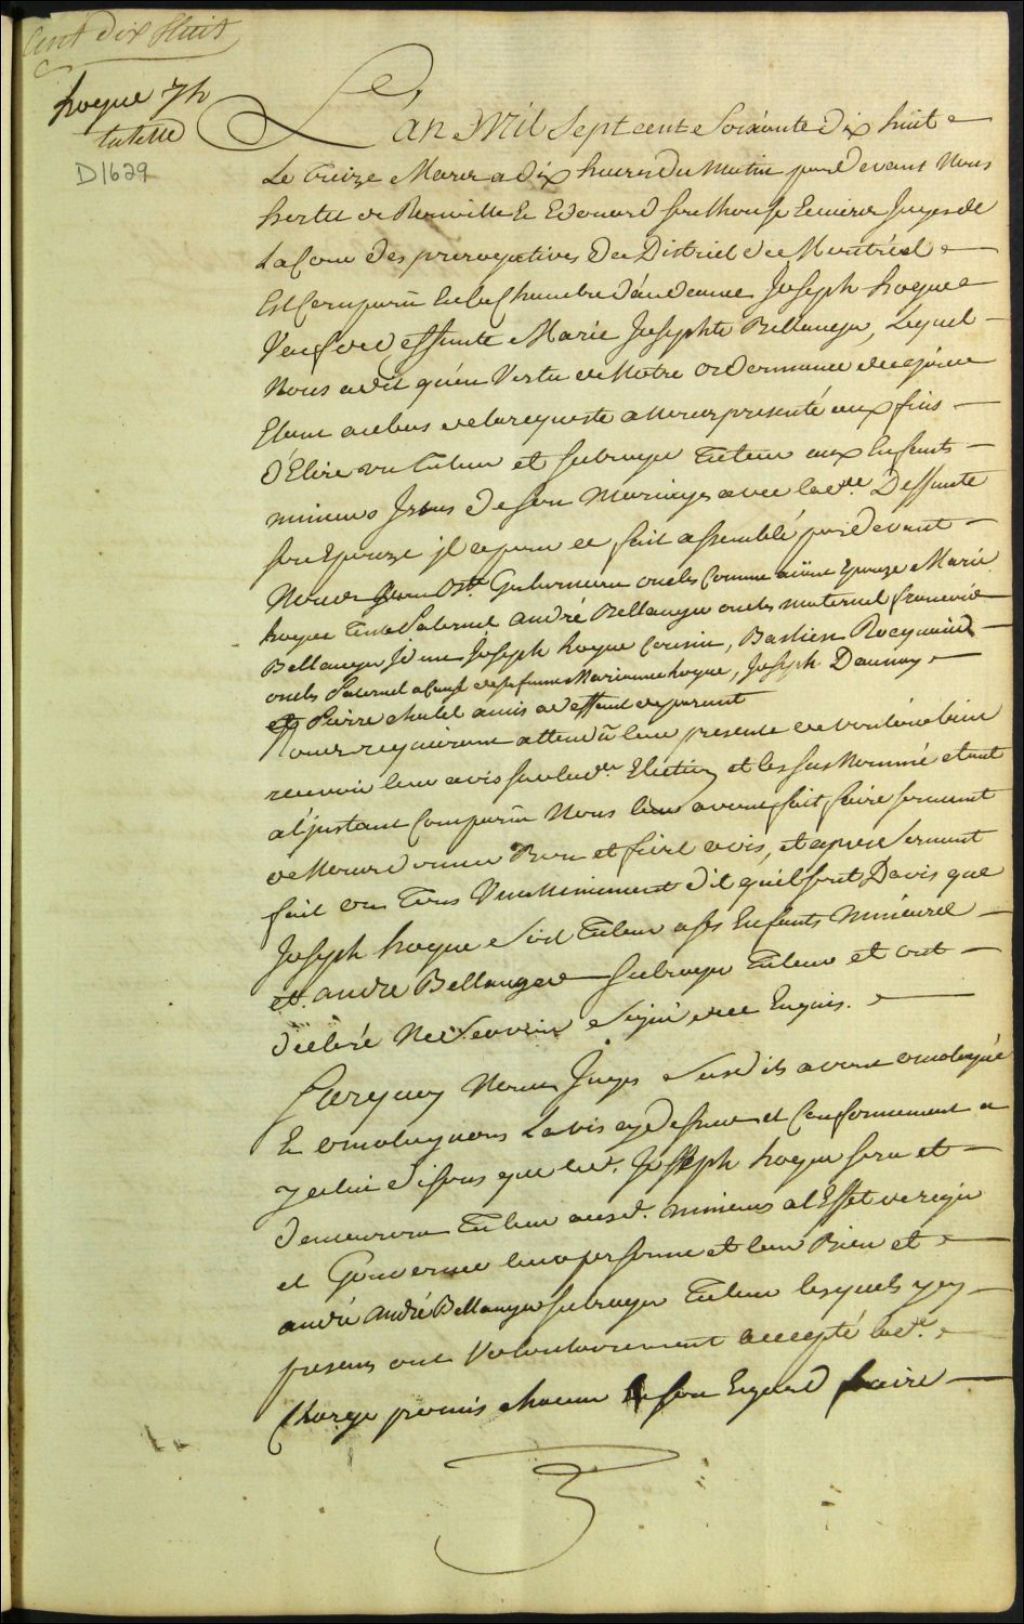 Cent Dix Huit
hogue Jh
tutelle
D1629
L'an Mil Sept cent Soixante Dix huit
Le Treize Mars a dix heures du Matin par devant Nous
hertel de Rouville Et Edouard Southouse Ecuiers Juges de
La Cour des prerogatives du District de Montréal
Est Comparu En la Chambre d'audience Joseph hogue
Veuf de deffunte Marie Josephte Bellanger, Lequel
Nous a dit qu'en Vertu de Notre ordonnance de ce jour
Etant au bas de la requeste a Nous presenté aux fins
d'Elire un Tuteur et subroger Tuteur aux Enfants
mineurs Issus de son Mariage avec lade. Deffunte
son Epouze il a fait assemblé par devant
Nous Bte. oncle Comme aiant Epouze Marie
hogue Tante Paternel André Bellanger oncle maternel francois
Bellanger Idem Joseph hogue Cousin, Bastien Rocquain
oncle Paternel a cause de sa femme Marianne hogue, Joseph Daunay
et Pierre chalel amis a deffaut de parent
Nous requierant attendu leur presence de vouloir bien
recevoir leur avis sur lade. Election et les sus Nommé etant
a l'Instant Comparu Nous leur avons fait faire serment
de Nous donner Bon et fidel avis, et apres serment
fait ont Tous Unanimement dit quil sont Davis que
Joseph hogue Soit Tuteur a ses Enfants Mineurs
et andre Bellanger subroger Tuteur et ont
declaré Ne Scavoir Signé de ce Enquis.
Surquoy Nous Juges Susdits avons omologué
Et omologuons Lavis cy dessus et Conformement a
Jcelui disons que led. Joseph hogue sera et
demeurera Tuteur ausd. mineurs a l'Effet de regir
et Gouverner leurs personne et leur Bien et
André Bellanger subroger Tuteur lesquels y
presens ont Volontairement accepté lade.
Charge promis chacun a son Egard faire